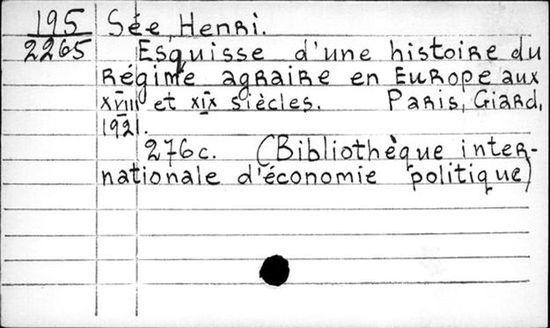 195 Sée, Henri.
2265 Esquisse d'une histoire du
régime agraire en Europe aux
XVIII et XIX siècles. Paris, Giard,
1921.
276 c. (Bibliothèque inter-
nationale d'économie politique)